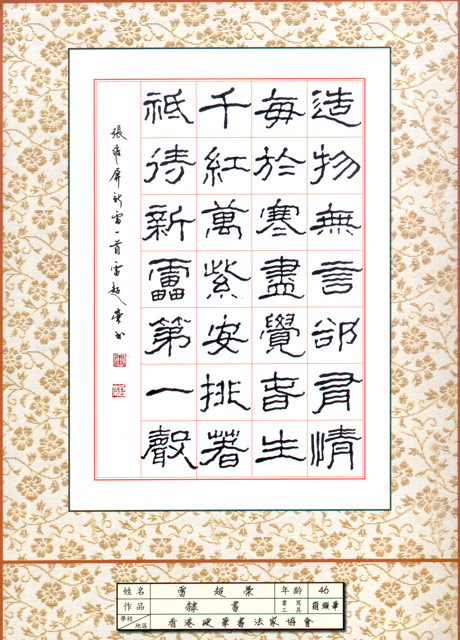 造物無言卻有情
每於寒盡覺春生
千紅萬紫安排著
祗待新靁第一聲
張維屏新雷一首雷超榮書
姓名 雷超榮 年齡 46
作品 隸書 書寫工具 箱頭筆
學校/地區 香港硬筆書法家協會